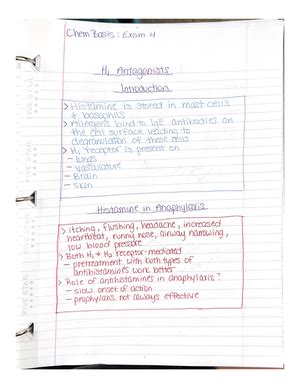 Chem Basis: Exam 4
H1 Antagonists
Introduction
> Histamine is stored in mast cells
+ basophils
> Allergens bind to IgE antibodies on
the cell surface leading to
degranulation of these cells
> H1 receptor is present on
- lungs
- vasculature
- Brain
- skin
Histamine in Anaphylaxis
> Itching, flushing, headache, increased
heartbeat, runny nose, airway narrowing,
low blood pressure
> Both H1 + H2 receptor-mediated
- pretreatment with both types of
antihistamines work better
> Role of antihistamines in anaphylaxis?
- slow onset of action
- prophylaxis not always effective
FIVE STAR
FIVE STAR
FIVE STAR